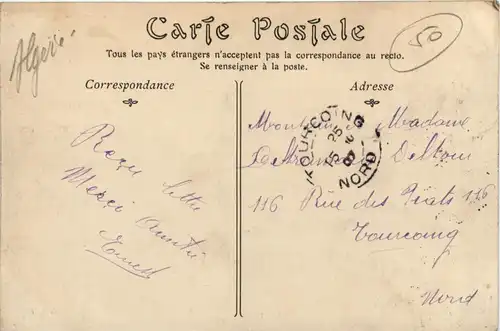 Algérie
50
Carte Postale
Tous les pays étrangers n'acceptent pas la correspondance au recto.
Se renseigner à la poste.
Correspondance
Adresse
Reçu lettre
Merci
Ernest
TOURCOING
NORD
Monsieur Madame
Deltour
116 Rue des Piats 116
Tourcoing
Nord